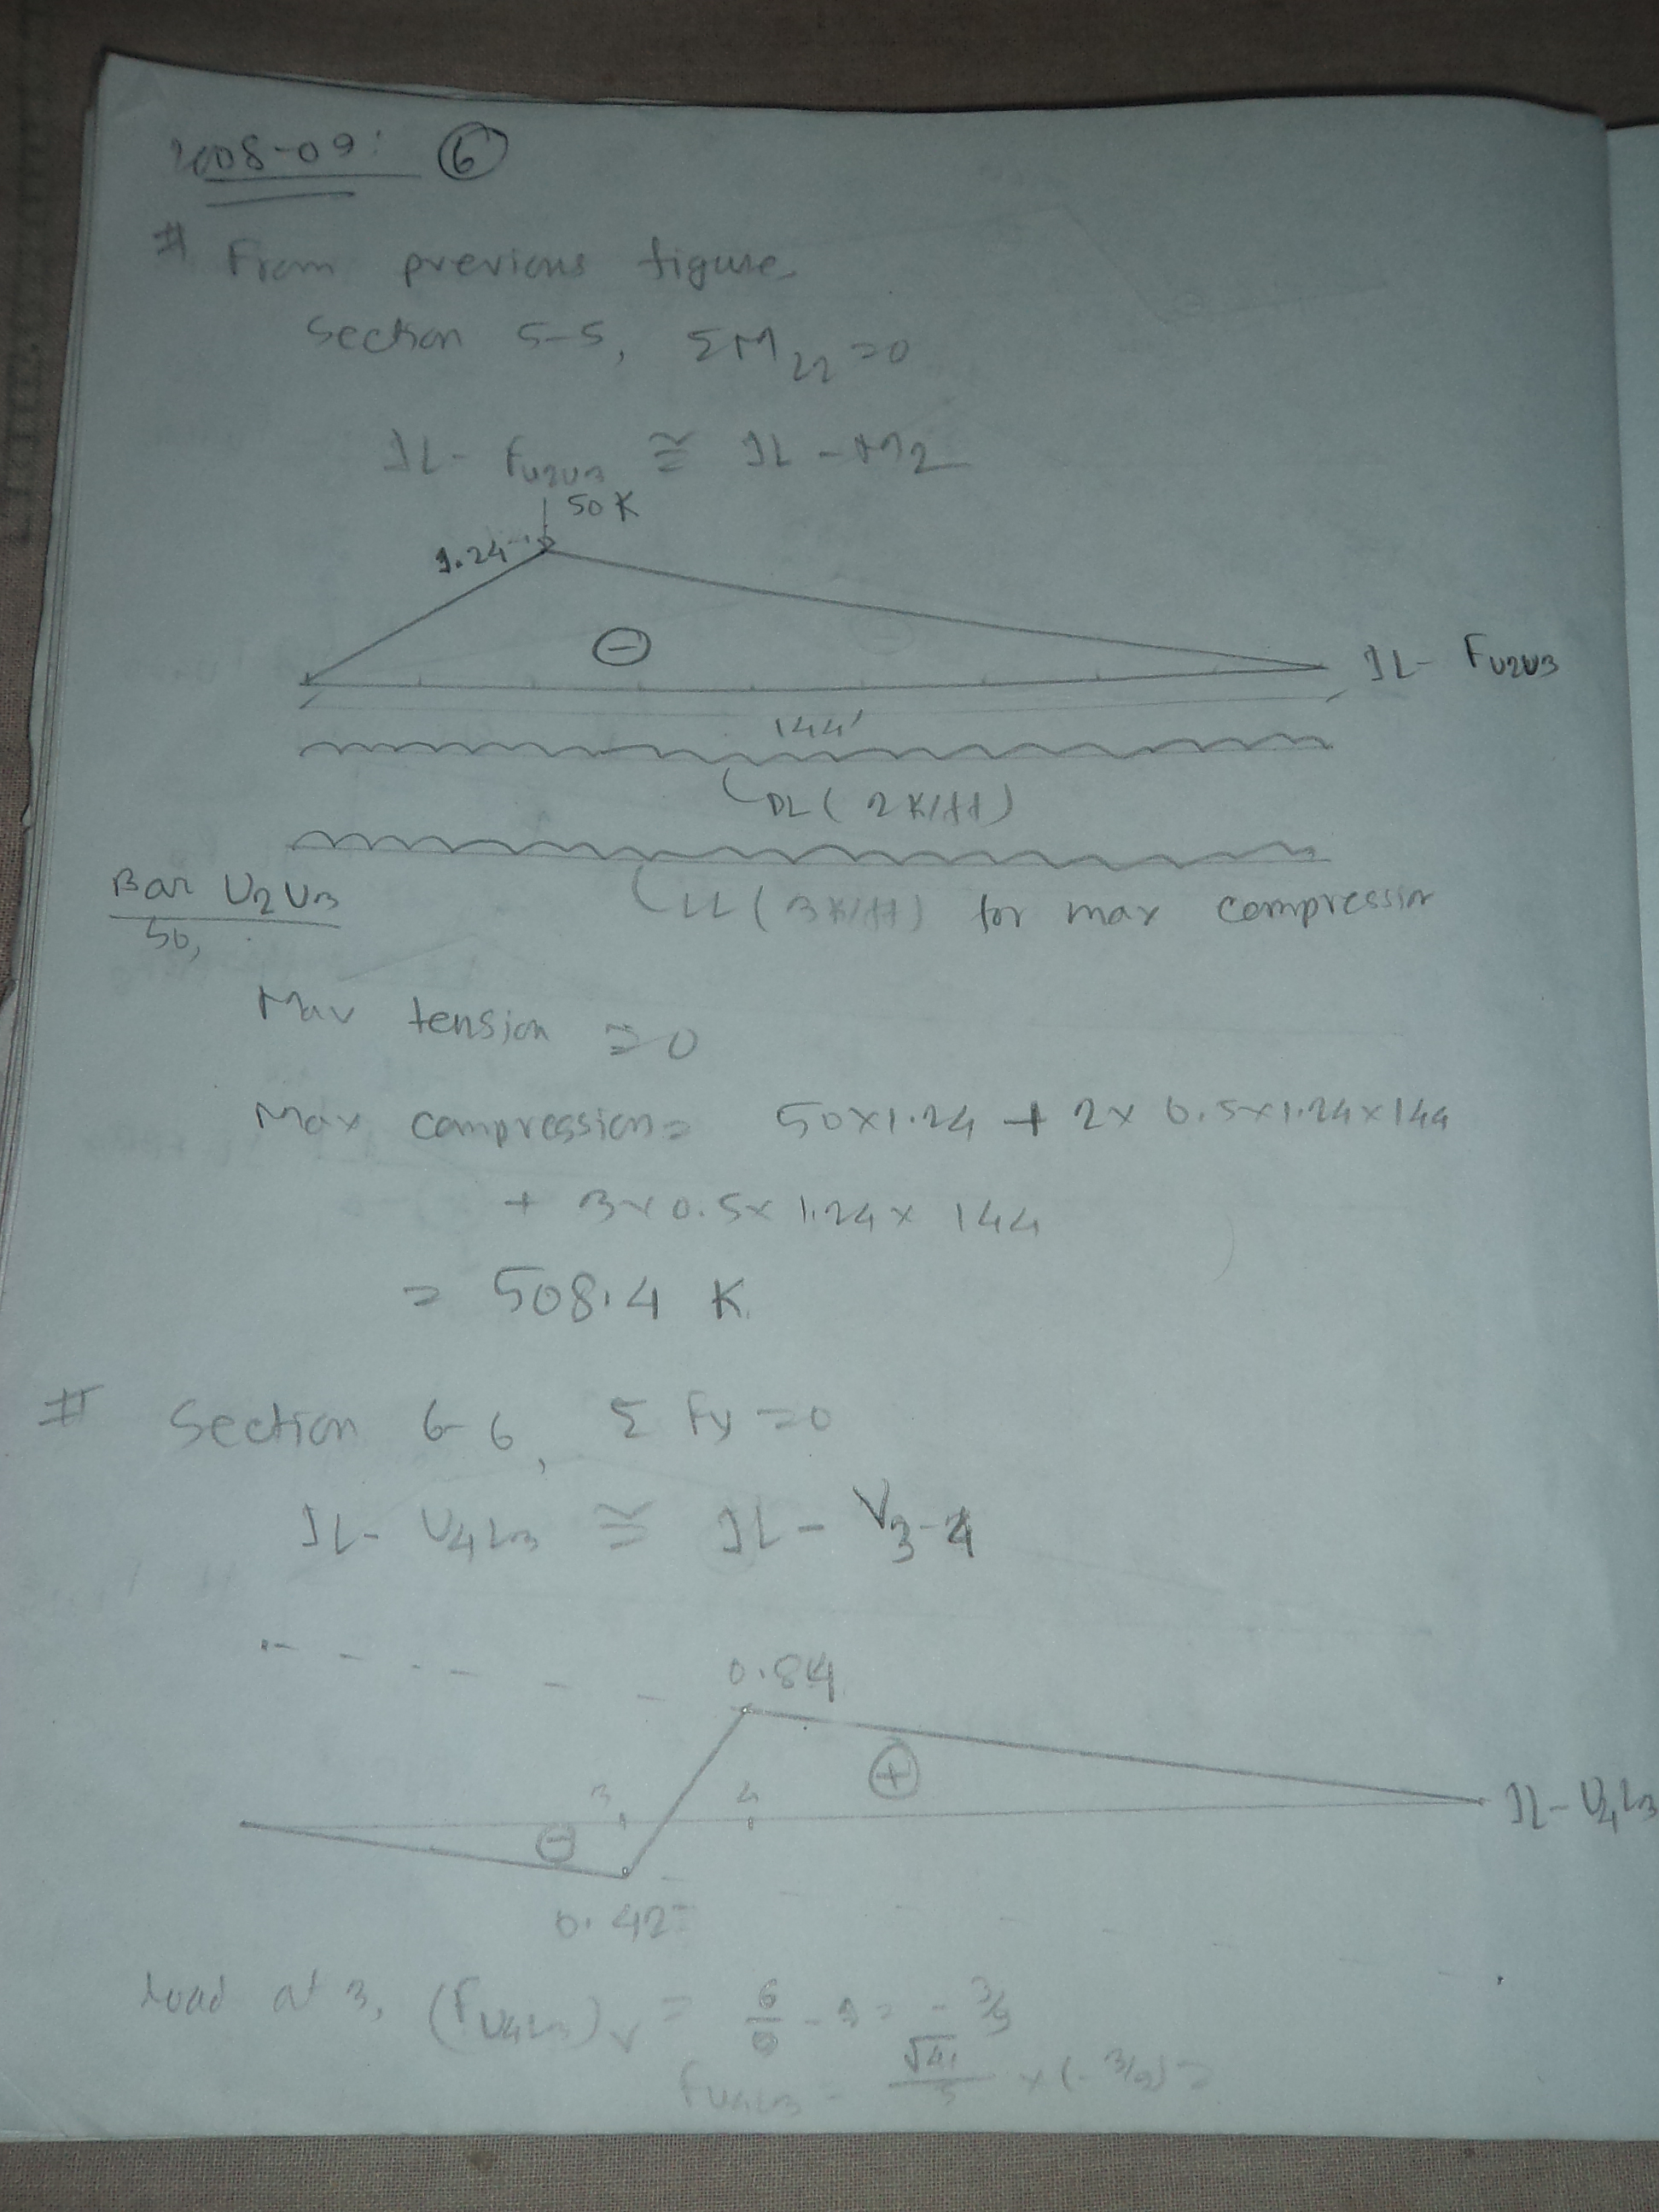 2008-09: 6
# From previous figure
Section 5-5, ΣM L2 = 0
IL- F U2U3 ≅ IL - M2
50 K
1.24
⊖
IL- F U2U3
144'
DL ( 2 K/ft )
LL ( 3 K/ft ) for max compression
Bar U2U3
So,
Max tension = 0
Max compression = 50×1.24 + 2× 0.5×1.24×144
+ 3×0.5× 1.24× 144
= 508.4 K
# Section 6-6, Σ Fy = 0
IL- U4L3 ≅ IL- V3-4
0.84
⊕
3 4
IL- U4L3
⊖
0.42
load at 3, (F U4L3)y = 6/9 - 1 = - 3/9
F U4L3 = √41/5 × (- 3/9) =